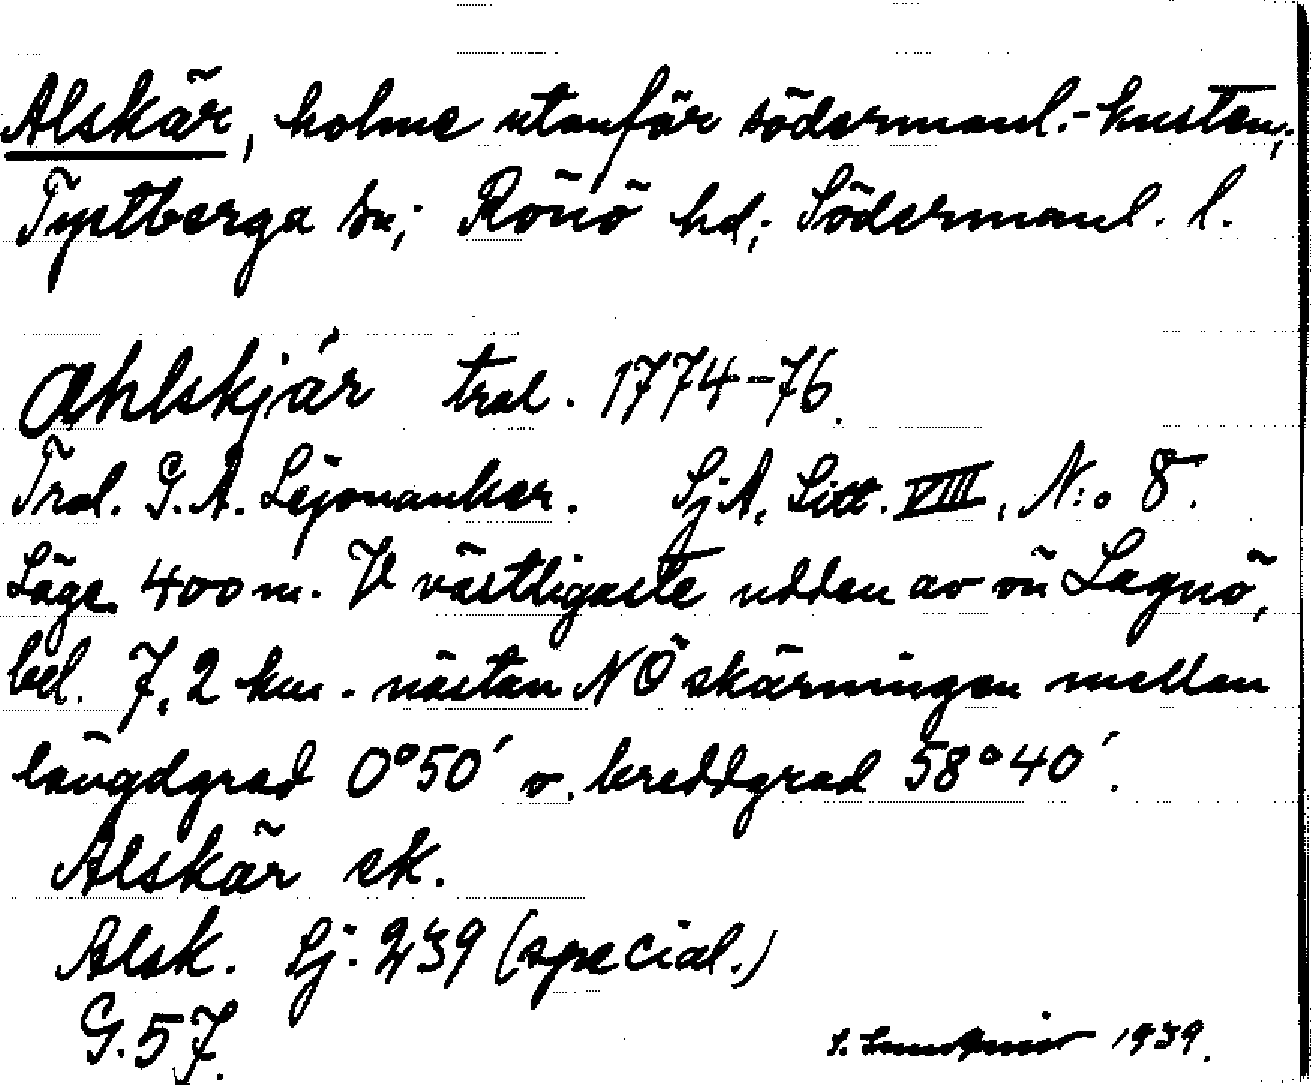 Alskär, holme utanför södermanl.-kusten,
Tystberga sn; Rönö hd; Södermanl. l.
Ahlskjär tral. 1774-76.
Tral. G.A. Lejonanker. SjA, Litt. VIII, N:o 8.
Läge 400 m. V västligaste udden av ön Lagnö,
bel. 7,2 km. nästan NÖ skärningen mellan
längdgrad 0°50′ o. breddgrad 58°40′.
Alskär ek.
Alsk. Sj. 239 (special.)
G. 57.
1939.